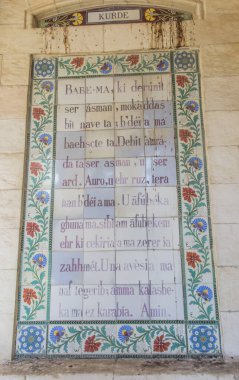 KURDE
BABE-MA, ki derúnit
ser asman, mokaddas
bit nave ta. b'déi a má
baehscte ta. Debit
da ta ser asman, u ser
ard. Auro, u ehr ruz, tera
nan b'déi a ma. U
ghuna ma, sibi am
ehr ki cekiria a ma zerer ki
zahhmét. U na avesia ma
naf tegeribe amma kalasbe-
ka ma ez karabia. Amin.